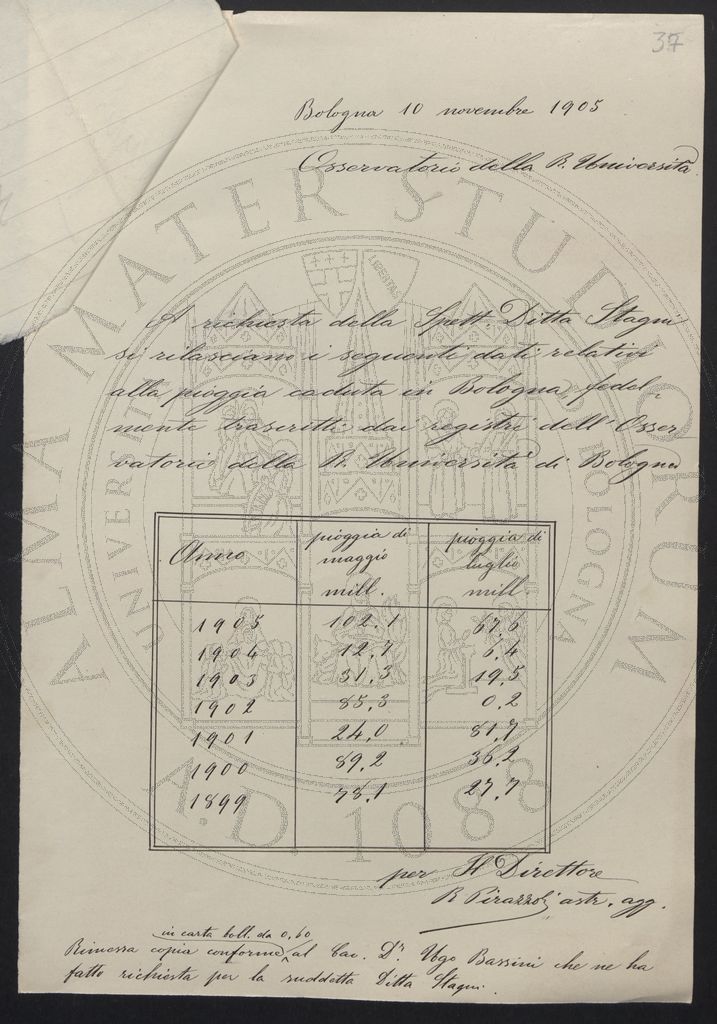 37
Bologna 10 novembre 1905
Osservatorio della R. Università
A richiesta della Spett. Ditta Stagni
si rilasciano i seguenti dati relativi
alla pioggia caduta in Bologna, fedel-
mente trascritti dai registri dell'Osser
vatorio della R. Università di Bologna
Anno pioggia di maggio mill. pioggia di luglio mill.
1905 102,1 67,6
1904 12,7 6,4
1903 31,3 19,5
1902 85,3 0,2
1901 24,0 81,7
1900 89,2 36,2
1899 78,1 27,7
per Il Direttore
R Pirazzoli astr. agg.
in carta boll. da 0,60
Rimessa copia conforme al Cav. Dr. Ugo Bassini che ne ha
fatto richiesta per la suddetta Ditta Stagni.
ALMA MATER STUDIORUM
A.D. 1088
LIBERTAS